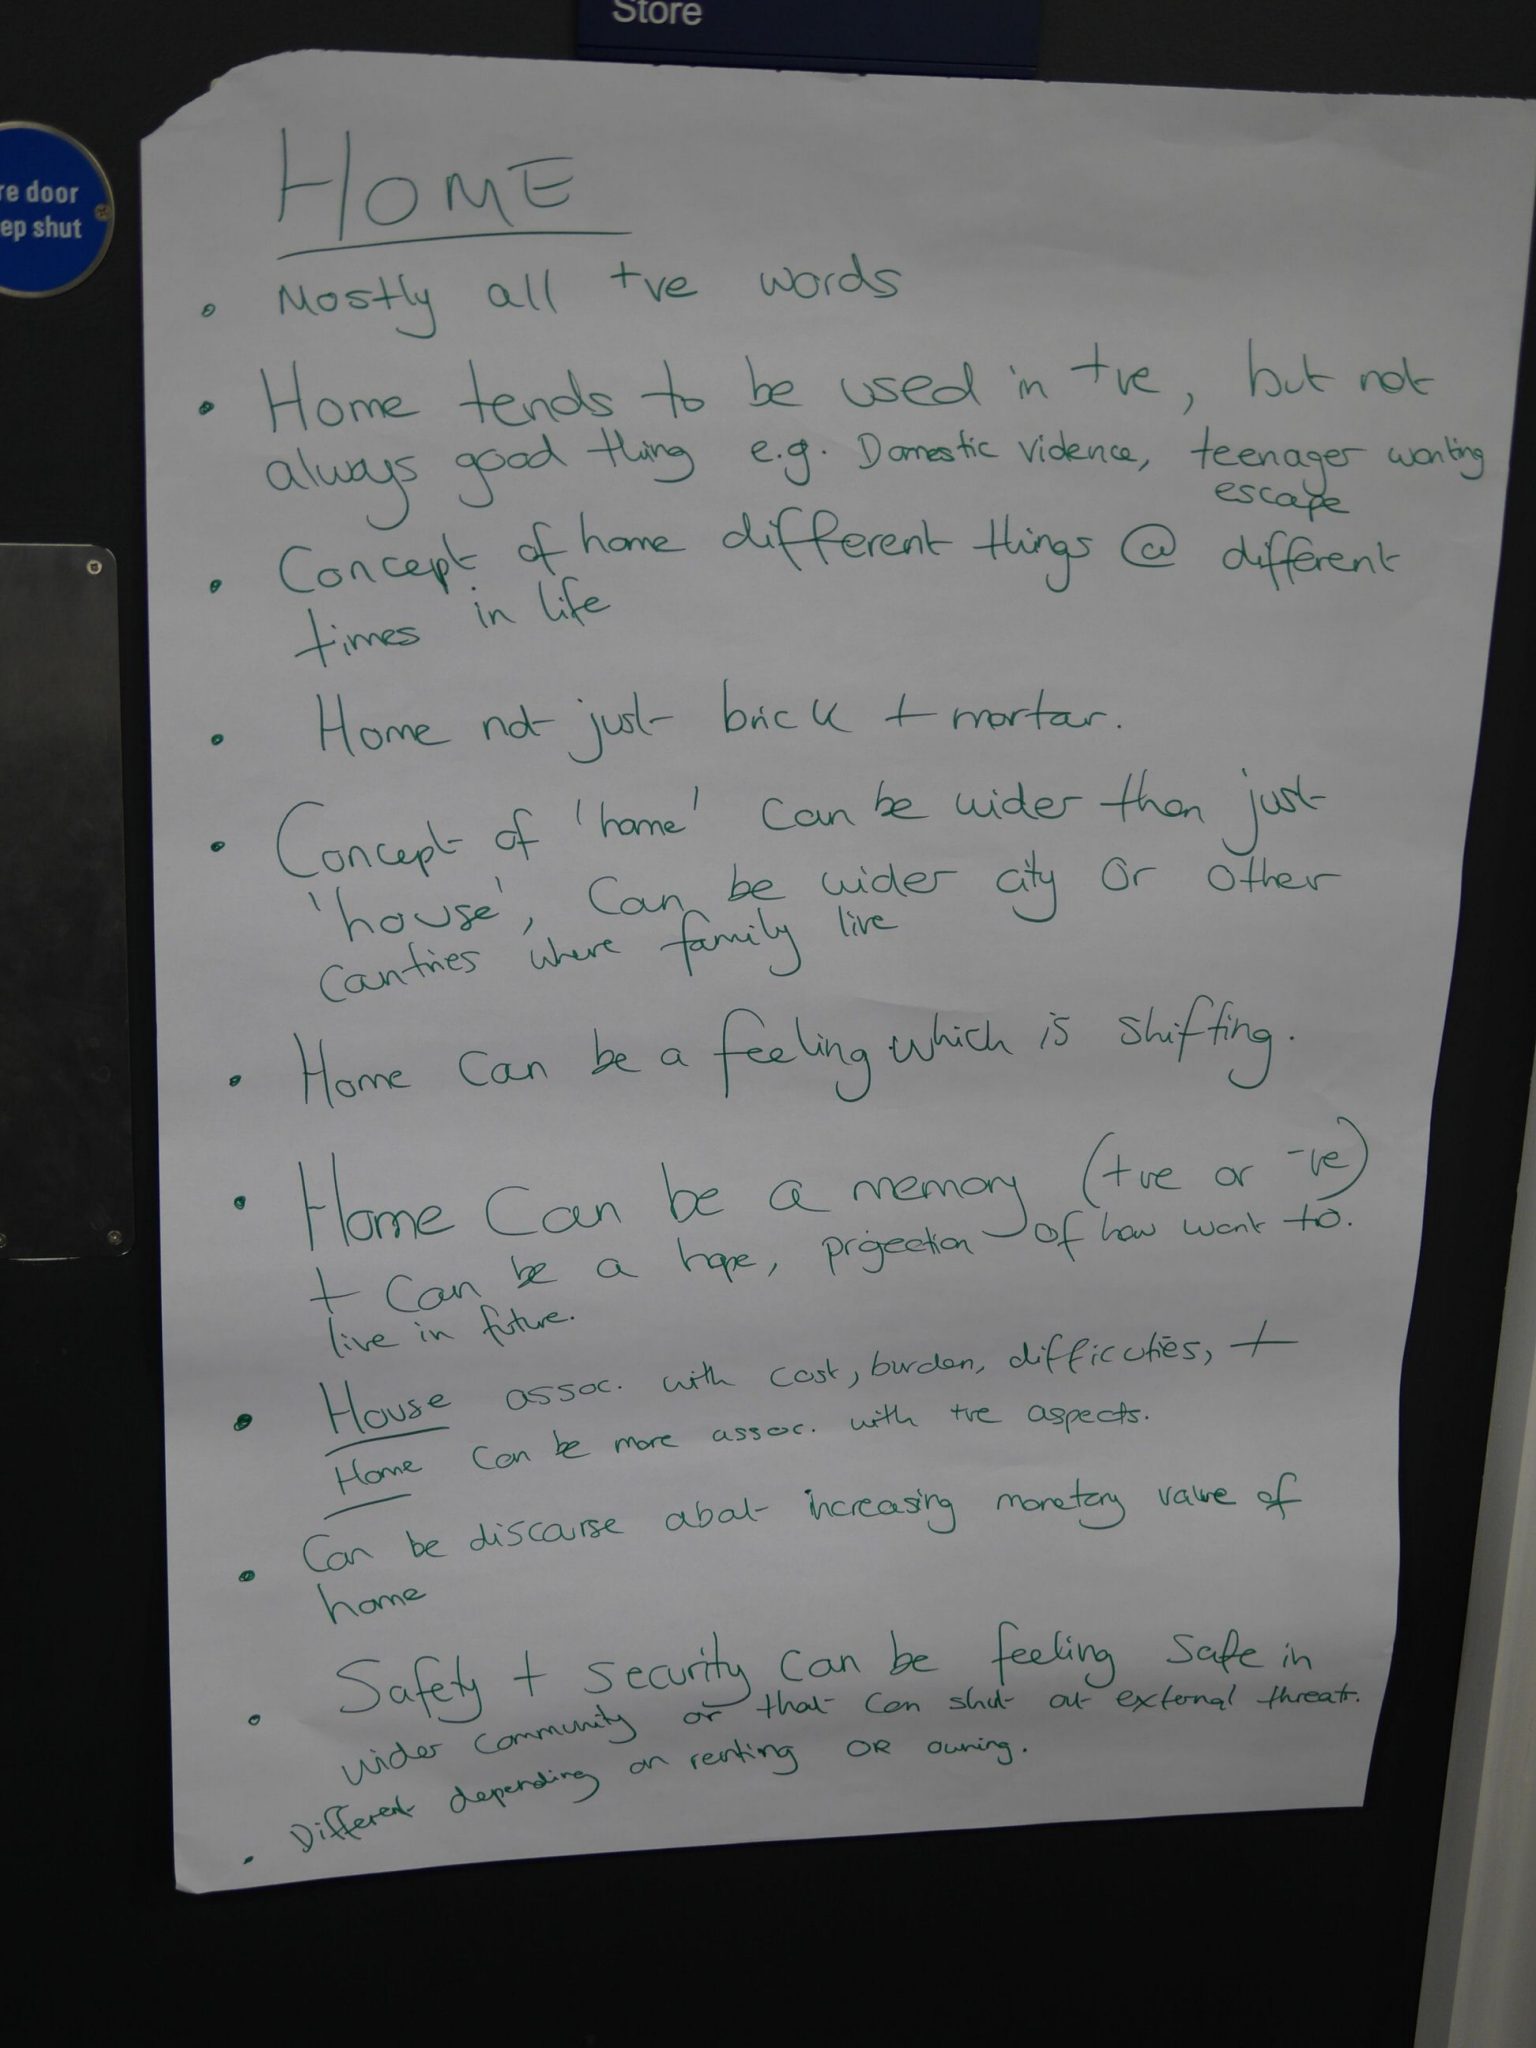 Store
re door
ep shut
HOME
• Mostly all +ve words
• Home tends to be used in +ve, but not
always good thing e.g. Domestic Violence, teenager wanting
escape
• Concept of home different things @ different
times in life
• Home not just brick + mortar.
• Concept of 'home' can be wider than just
'house', can be wider city or other
countries where family live
• Home can be a feeling which is shifting.
• Home can be a memory (+ve or -ve)
+ can be a hope, projection of how want to.
live in future.
• House assoc. with cost, burden, difficulties, +
Home can be more assoc. with +ve aspects.
• Can be discourse about increasing monetary value of
home
• Safety + security can be feeling safe in
wider community or that can shut out external threat.
• Different depending on renting OR owning.